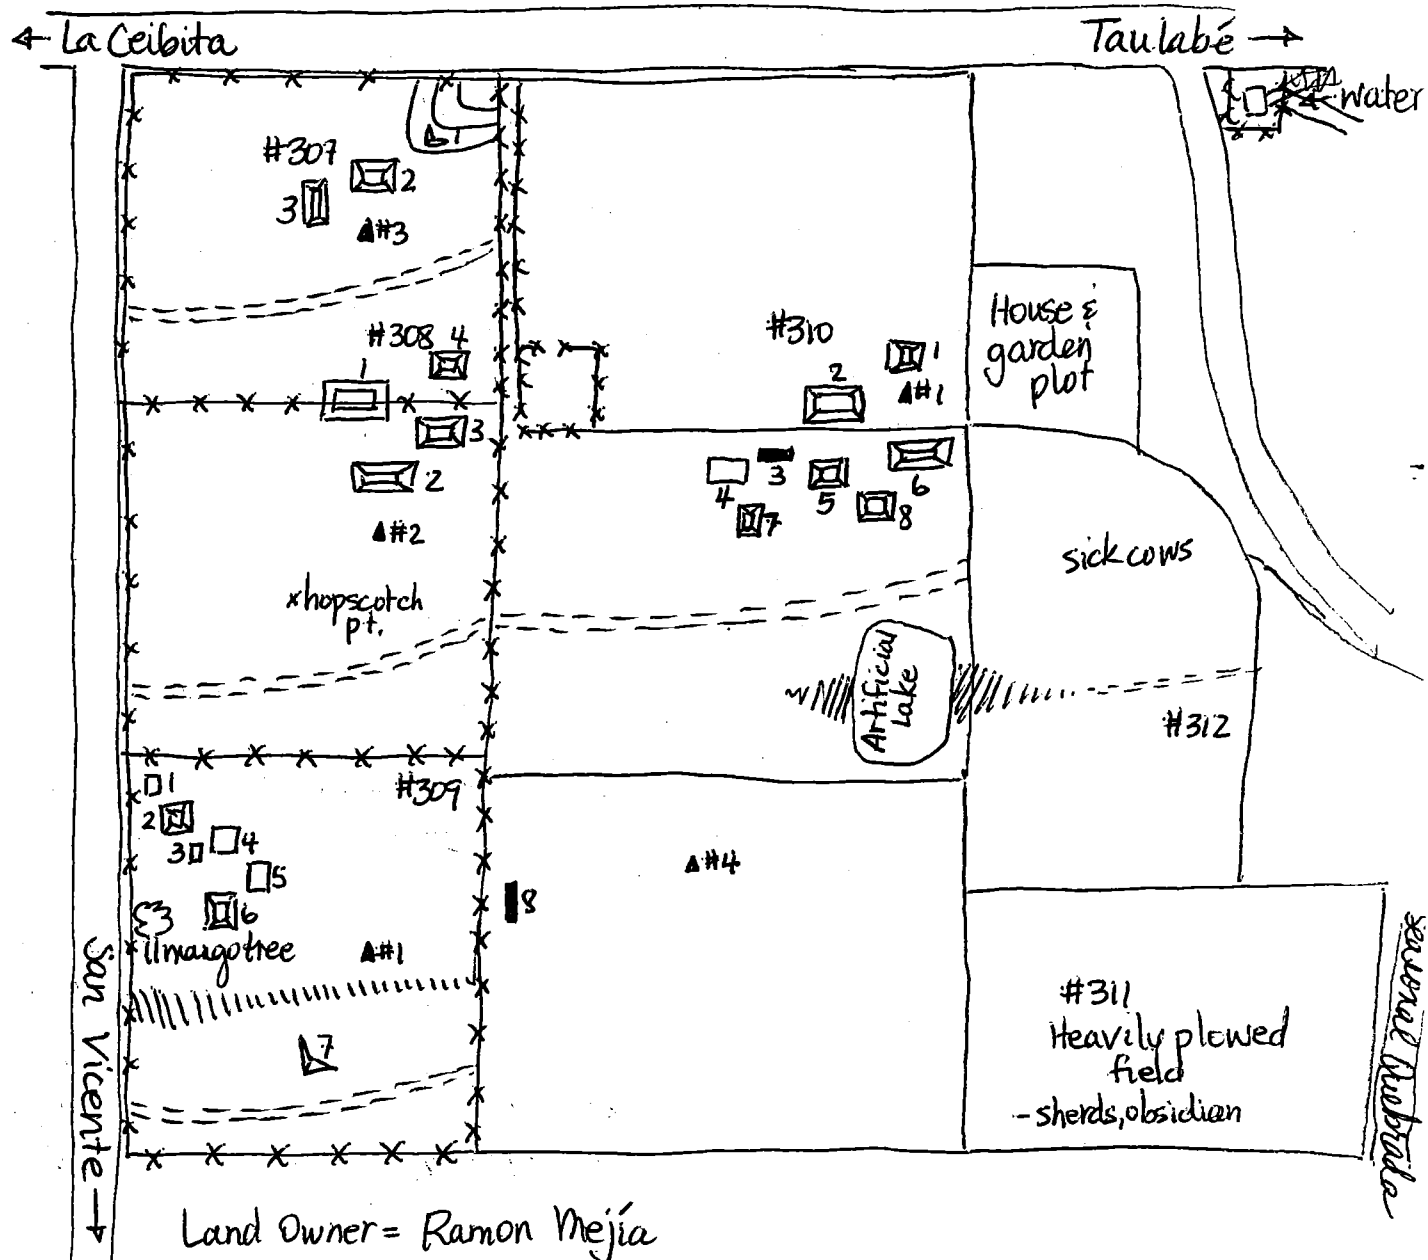 ← La Ceibita
Taulabé →
water
#307
1
2
3
▲#3
#308
4
1
3
2
▲#2
x hopscotch
pt.
#310
1
2
▲#1
3
4
5
6
7
8
House &
garden
plot
sick cows
Artificial
Lake
#312
#309
1
2
3
4
5
6
mango tree
▲#1
7
8
▲#4
#311
Heavily plowed
field
- sherds, obsidian
San Vicente →
seasonal Quebrada
Land Owner = Ramon Mejía